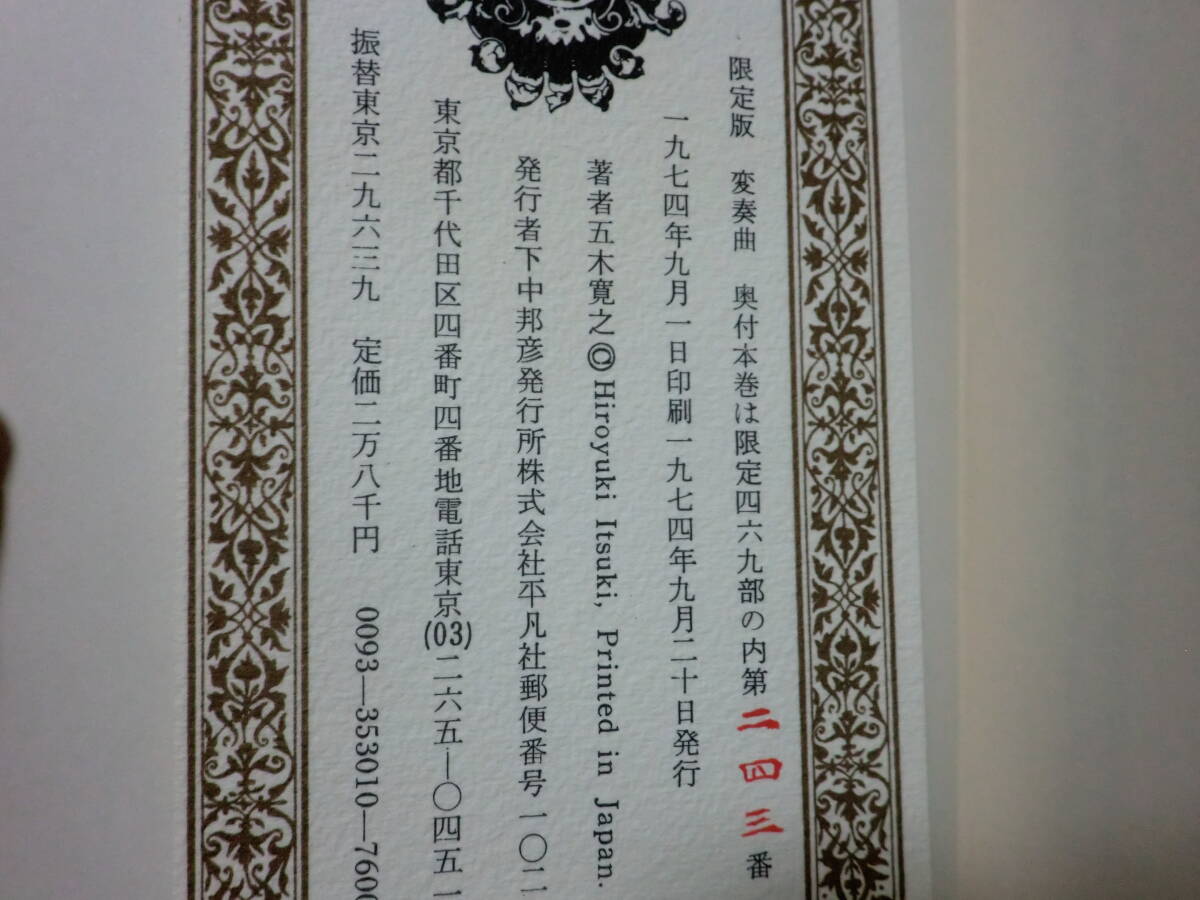 限定版　変奏曲　奥付本巻は限定四六九部の内第二四三番
一九七四年九月一日印刷一九七四年九月二十日発行
著者五木寛之©Hiroyuki Itsuki, Printed in Japan.
発行者下中邦彦発行所株式会社平凡社郵便番号一〇二
東京都千代田区四番町四番地電話東京(03)二六五―〇四五一
振替東京二九六三九　定価二万八千円　0093―353010―7600